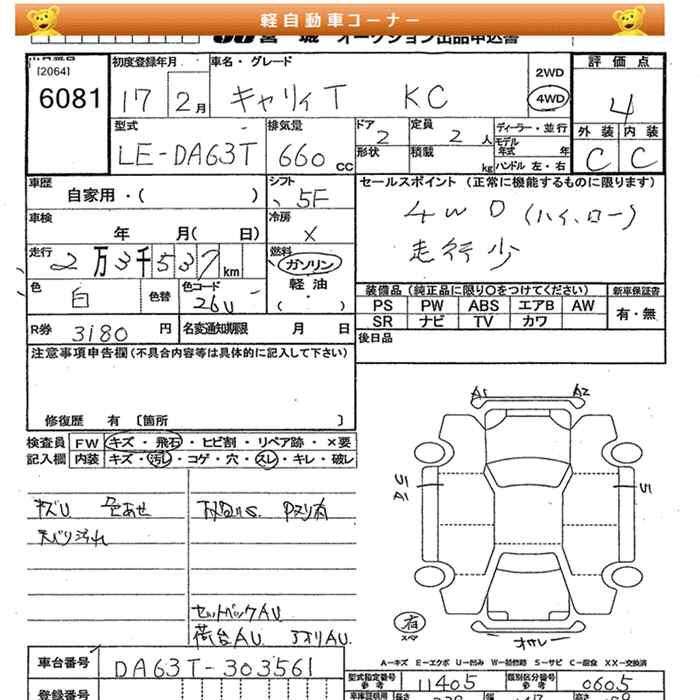 軽自動車コーナー
宮城 オークション出品申込書
[2064]
6081
初度登録年月
17 2月
車名・グレード
キャリィT KC
2WD
4WD
評価点
4
外装 内装
C C
型式
LE-DA63T
排気量
660 CC
ドア
2
定員
2 人
形状
積載
kg
ディーラー・並行
モデル年式 年
ハンドル 左・右
車歴
自家用・( )
シフト
5F
セールスポイント (正常に機能するものに限ります)
4WD (ハイ、ロー)
走行少
車検
年 月( 日)
冷房
×
走行
2万3千537km
燃料
ガソリン
軽油
( )
色
白
色替
色コード
26U
装備品(純正品に限り○をつけてください)
新車保証書
PS PW ABS エアB AW
SR ナビ TV カワ
有・無
R券 3180 円
名変通知期限 月 日
後日品
注意事項申告欄(不具合内容等は具体的に記入して下さい)
修復歴 有 〔箇所 〕
検査員記入欄
FW キズ・飛石・ヒビ割・リペア跡・×要
内装 キズ・汚レ・コゲ・穴・スレ・キレ・破レ
キズU 色あせ
下廻りS
天バリ汚れ
セットバックAU
荷台AU アオリAU
A1 A2
U1
A1
U1
有
オサレ
A=キズ E=エクボ U=凹み W=補修跡 S=サビ C=腐食 XX=交換済
車台番号
DA63T-303561
登録番号
型式指定番号
参考
11405
類別区分番号
参考
0605
車庫証明用
長さ
幅
高さ